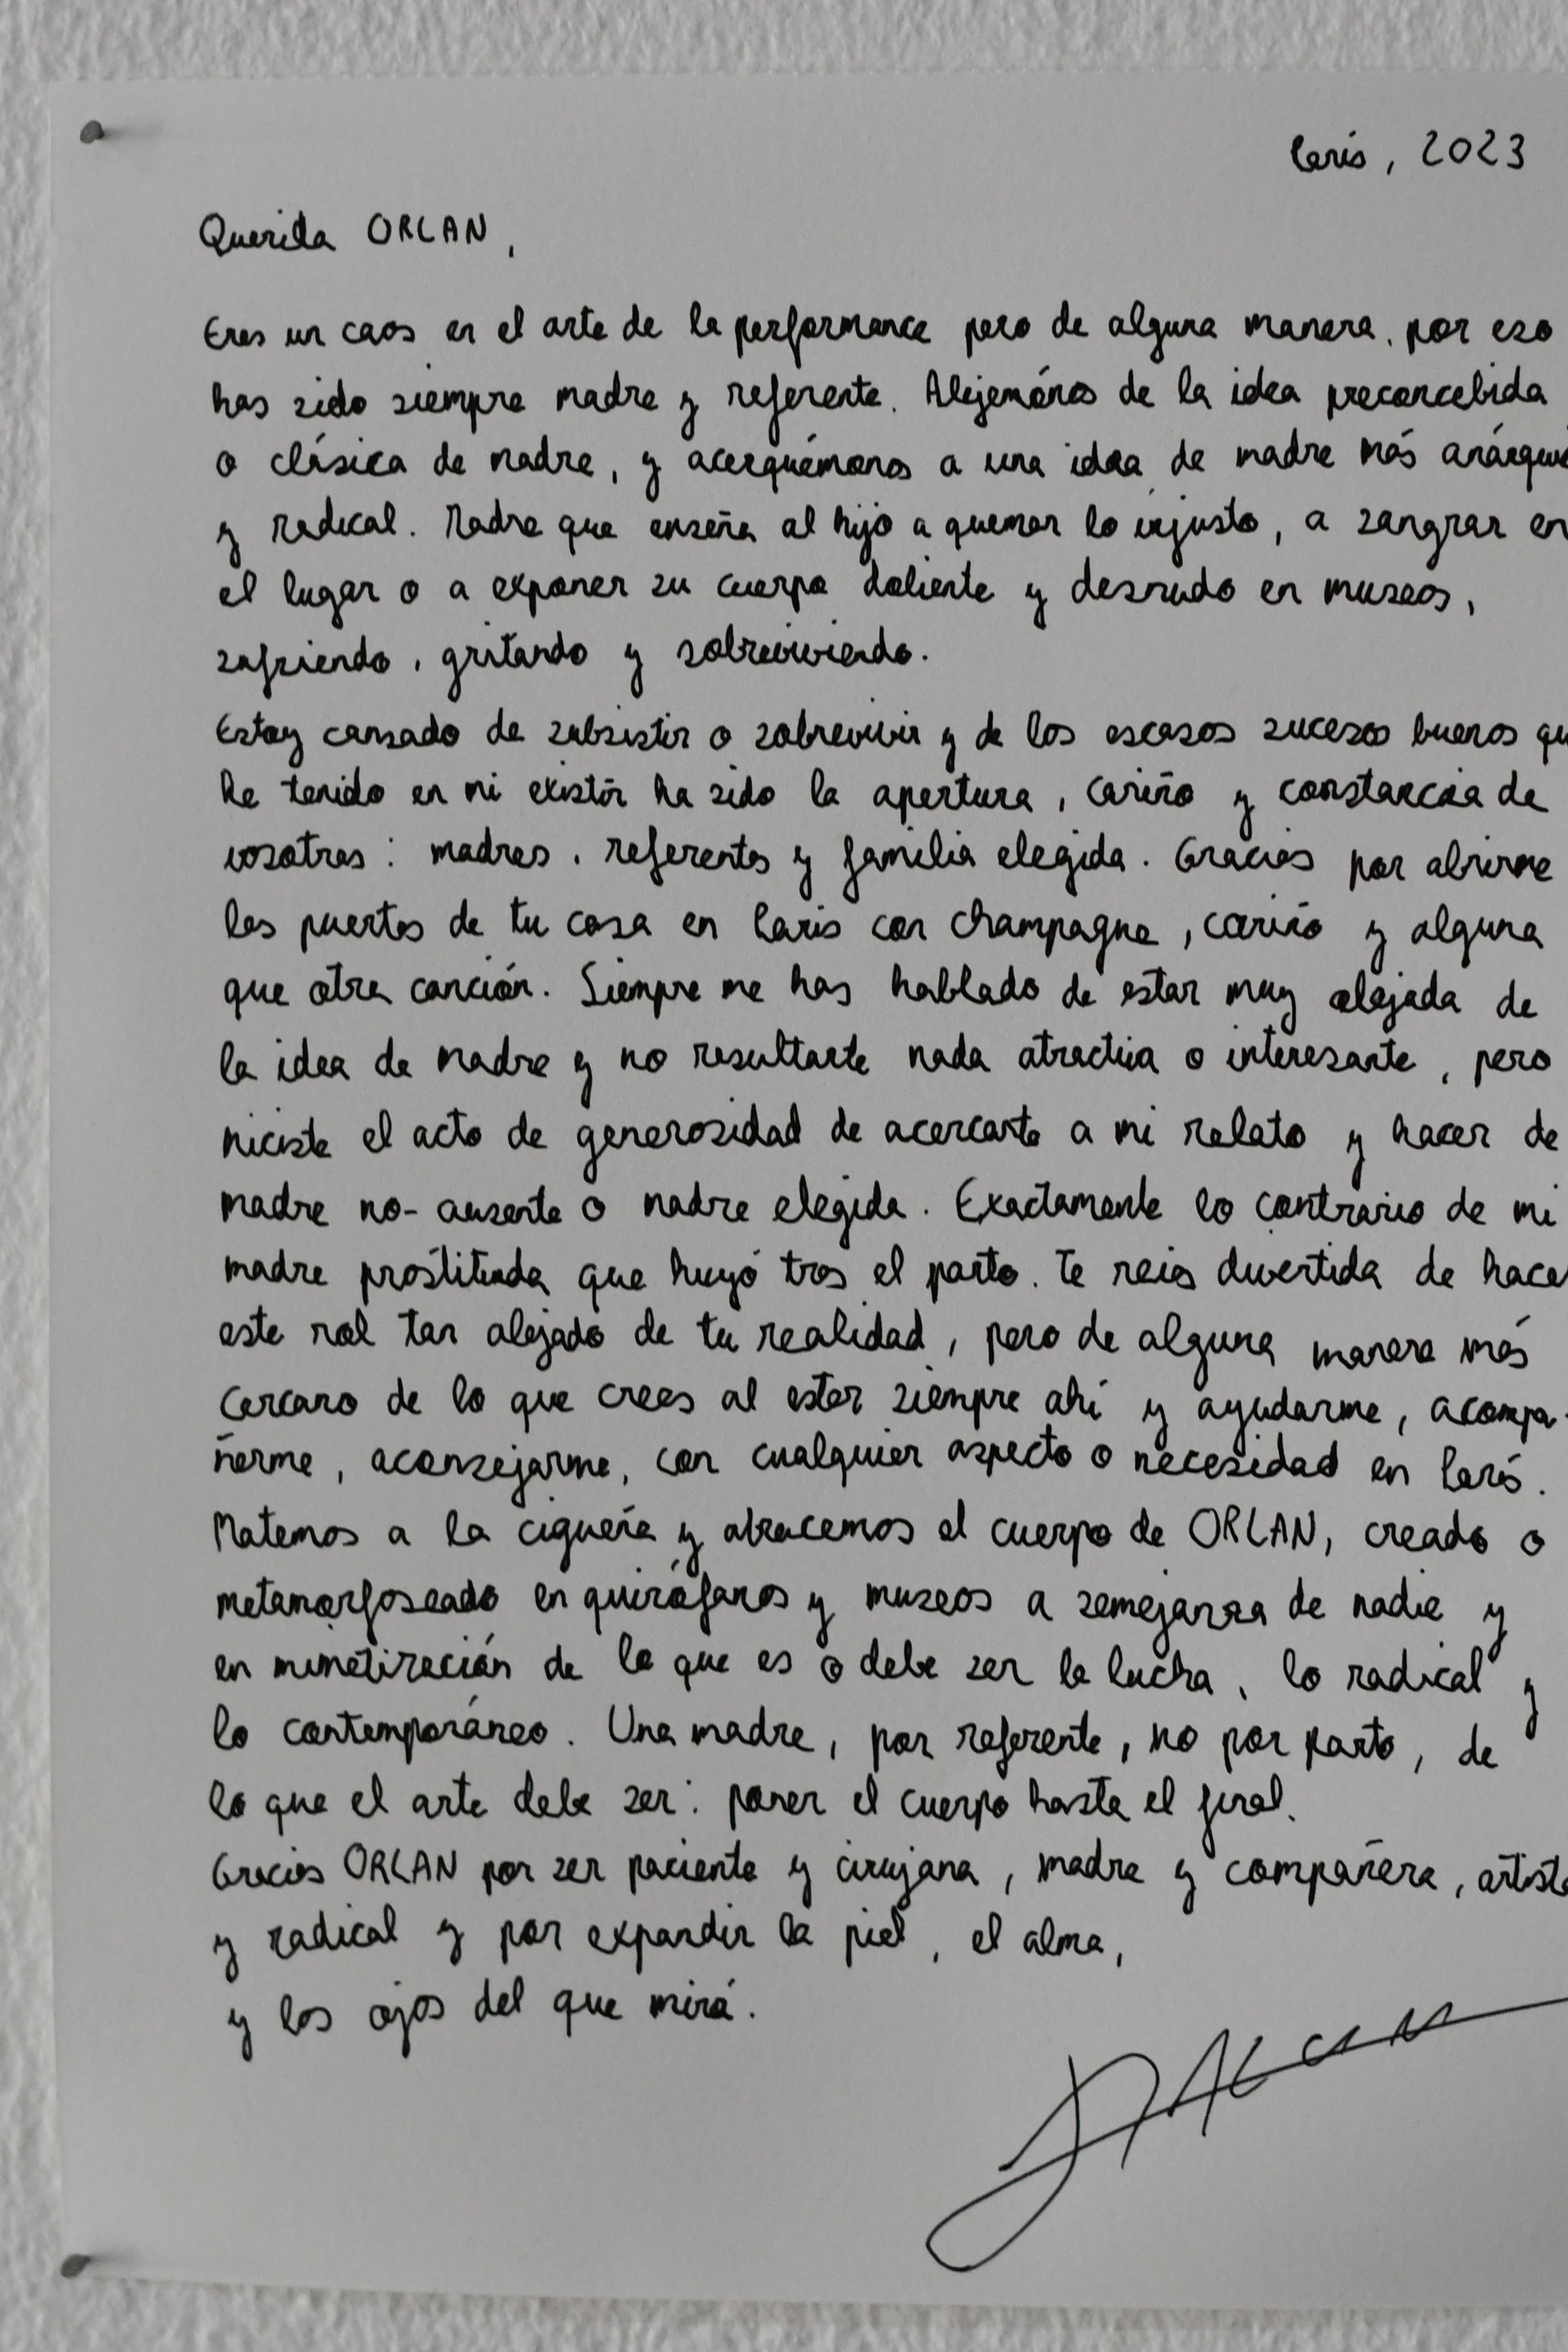 Paris, 2023
Querida ORLAN,
Eres un caos en el arte de la performance pero de alguna manera, por eso
has sido siempre madre y referente. Alejemónos de la idea preconcebida
o clásica de madre, y acerquémonos a una idea de madre más anárqui
y radical. Madre que enseña al hijo a quemar lo injusto, a sangrar en
el lugar o a exponer su cuerpo doliente y desnudo en museos,
sufriendo, gritando y sobreviviendo.
Estoy cansado de subsistir o sobrevivir y de los escasos sucesos buenos qu
he tenido en mi existir ha sido la apertura, cariño y constancia de
vosotras: madres, referentes y familia elegida. Gracias por abrirme
las puertas de tu casa en Paris con champagne, cariño y alguna
que otra canción. Siempre me has hablado de estar muy alejada de
la idea de madre y no resultarte nada atractiva o interesante, pero
hiciste el acto de generosidad de acercarte a mi relato y hacer de
madre no-ausente o madre elegida. Exactamente lo contrario de mi
madre prostituida que huyó tras el parto. Te reías divertida de hace
este rol tan alejado de tu realidad, pero de alguna manera más
cercano de lo que crees al estar siempre ahí y ayudarme, acompa-
ñarme, aconsejarme, con cualquier aspecto o necesidad en Paris.
Matemos a la cigueña y abracemos el cuerpo de ORLAN, creado o
metamorfoseado en quirófanos y museos a semejanza de nadie y
en mimetización de lo que es o debe ser la lucha, lo radical y
lo contemporáneo. Una madre, por referente, no por parto, de
lo que el arte debe ser: poner el cuerpo hasta el final.
Gracias ORLAN por ser paciente y cirujana, madre y compañera, artista
y radical y por expandir la piel, el alma,
y los ojos del que mirá.